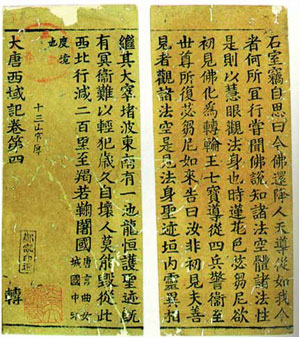 石室竊自思曰今佛還降人天導從如我今
者何所宜行嘗聞佛說知諸法空體諸法性
是則以慧眼觀法身也時蓮花色苾芻尼欲
初見佛化為轉輪王七寶導從四兵警衛至
世尊所復苾芻尼如來告曰汝非初見夫善
見者觀諸法空是見法身聖迹垣內靈異相
繼其大窣堵波東南有一池龍恒護聖迹既
有冥衛難以輕犯歲久自壞人莫能毀從此
西北行減二百里至羯若鞠闍國唐言曲女城國中印
度境也
十三
大唐西域記卷第四
轉